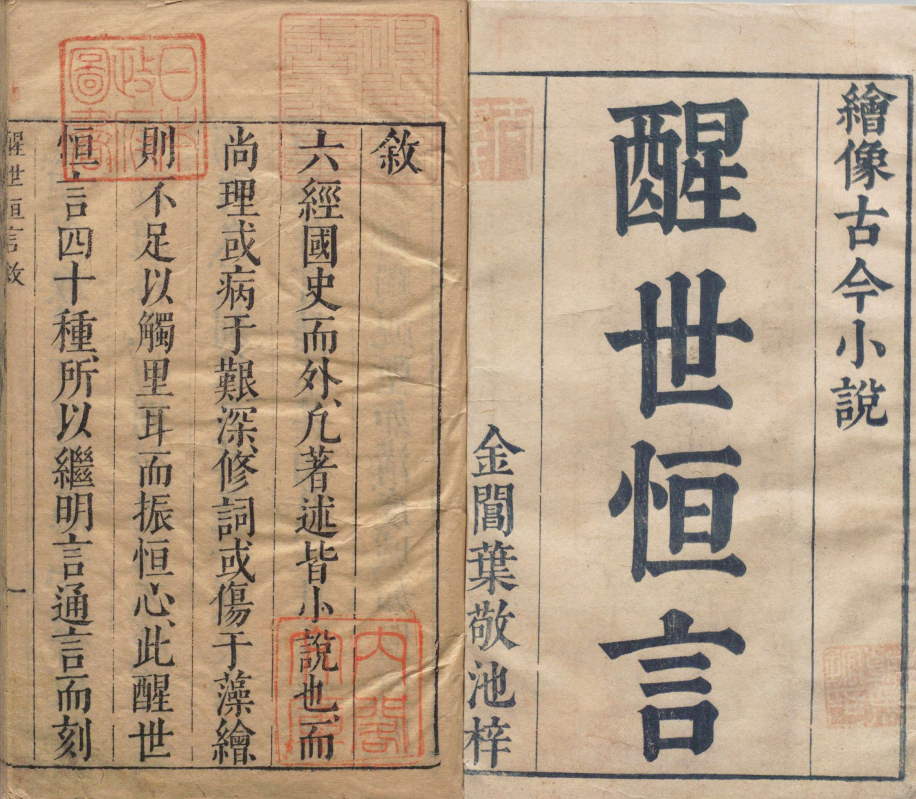 繪像古今小說
醒世恒言
金閶葉敬池梓
敘
六經國史而外、凣著述皆小說也、而
尚理或病于艱深、修詞或傷于藻繪
則不足以觸里耳而振恒心、此醒世
恒言四十種、所以繼明言通言而刻
醒世恒言敘
一
日本
政府
圖書
內閣
文庫